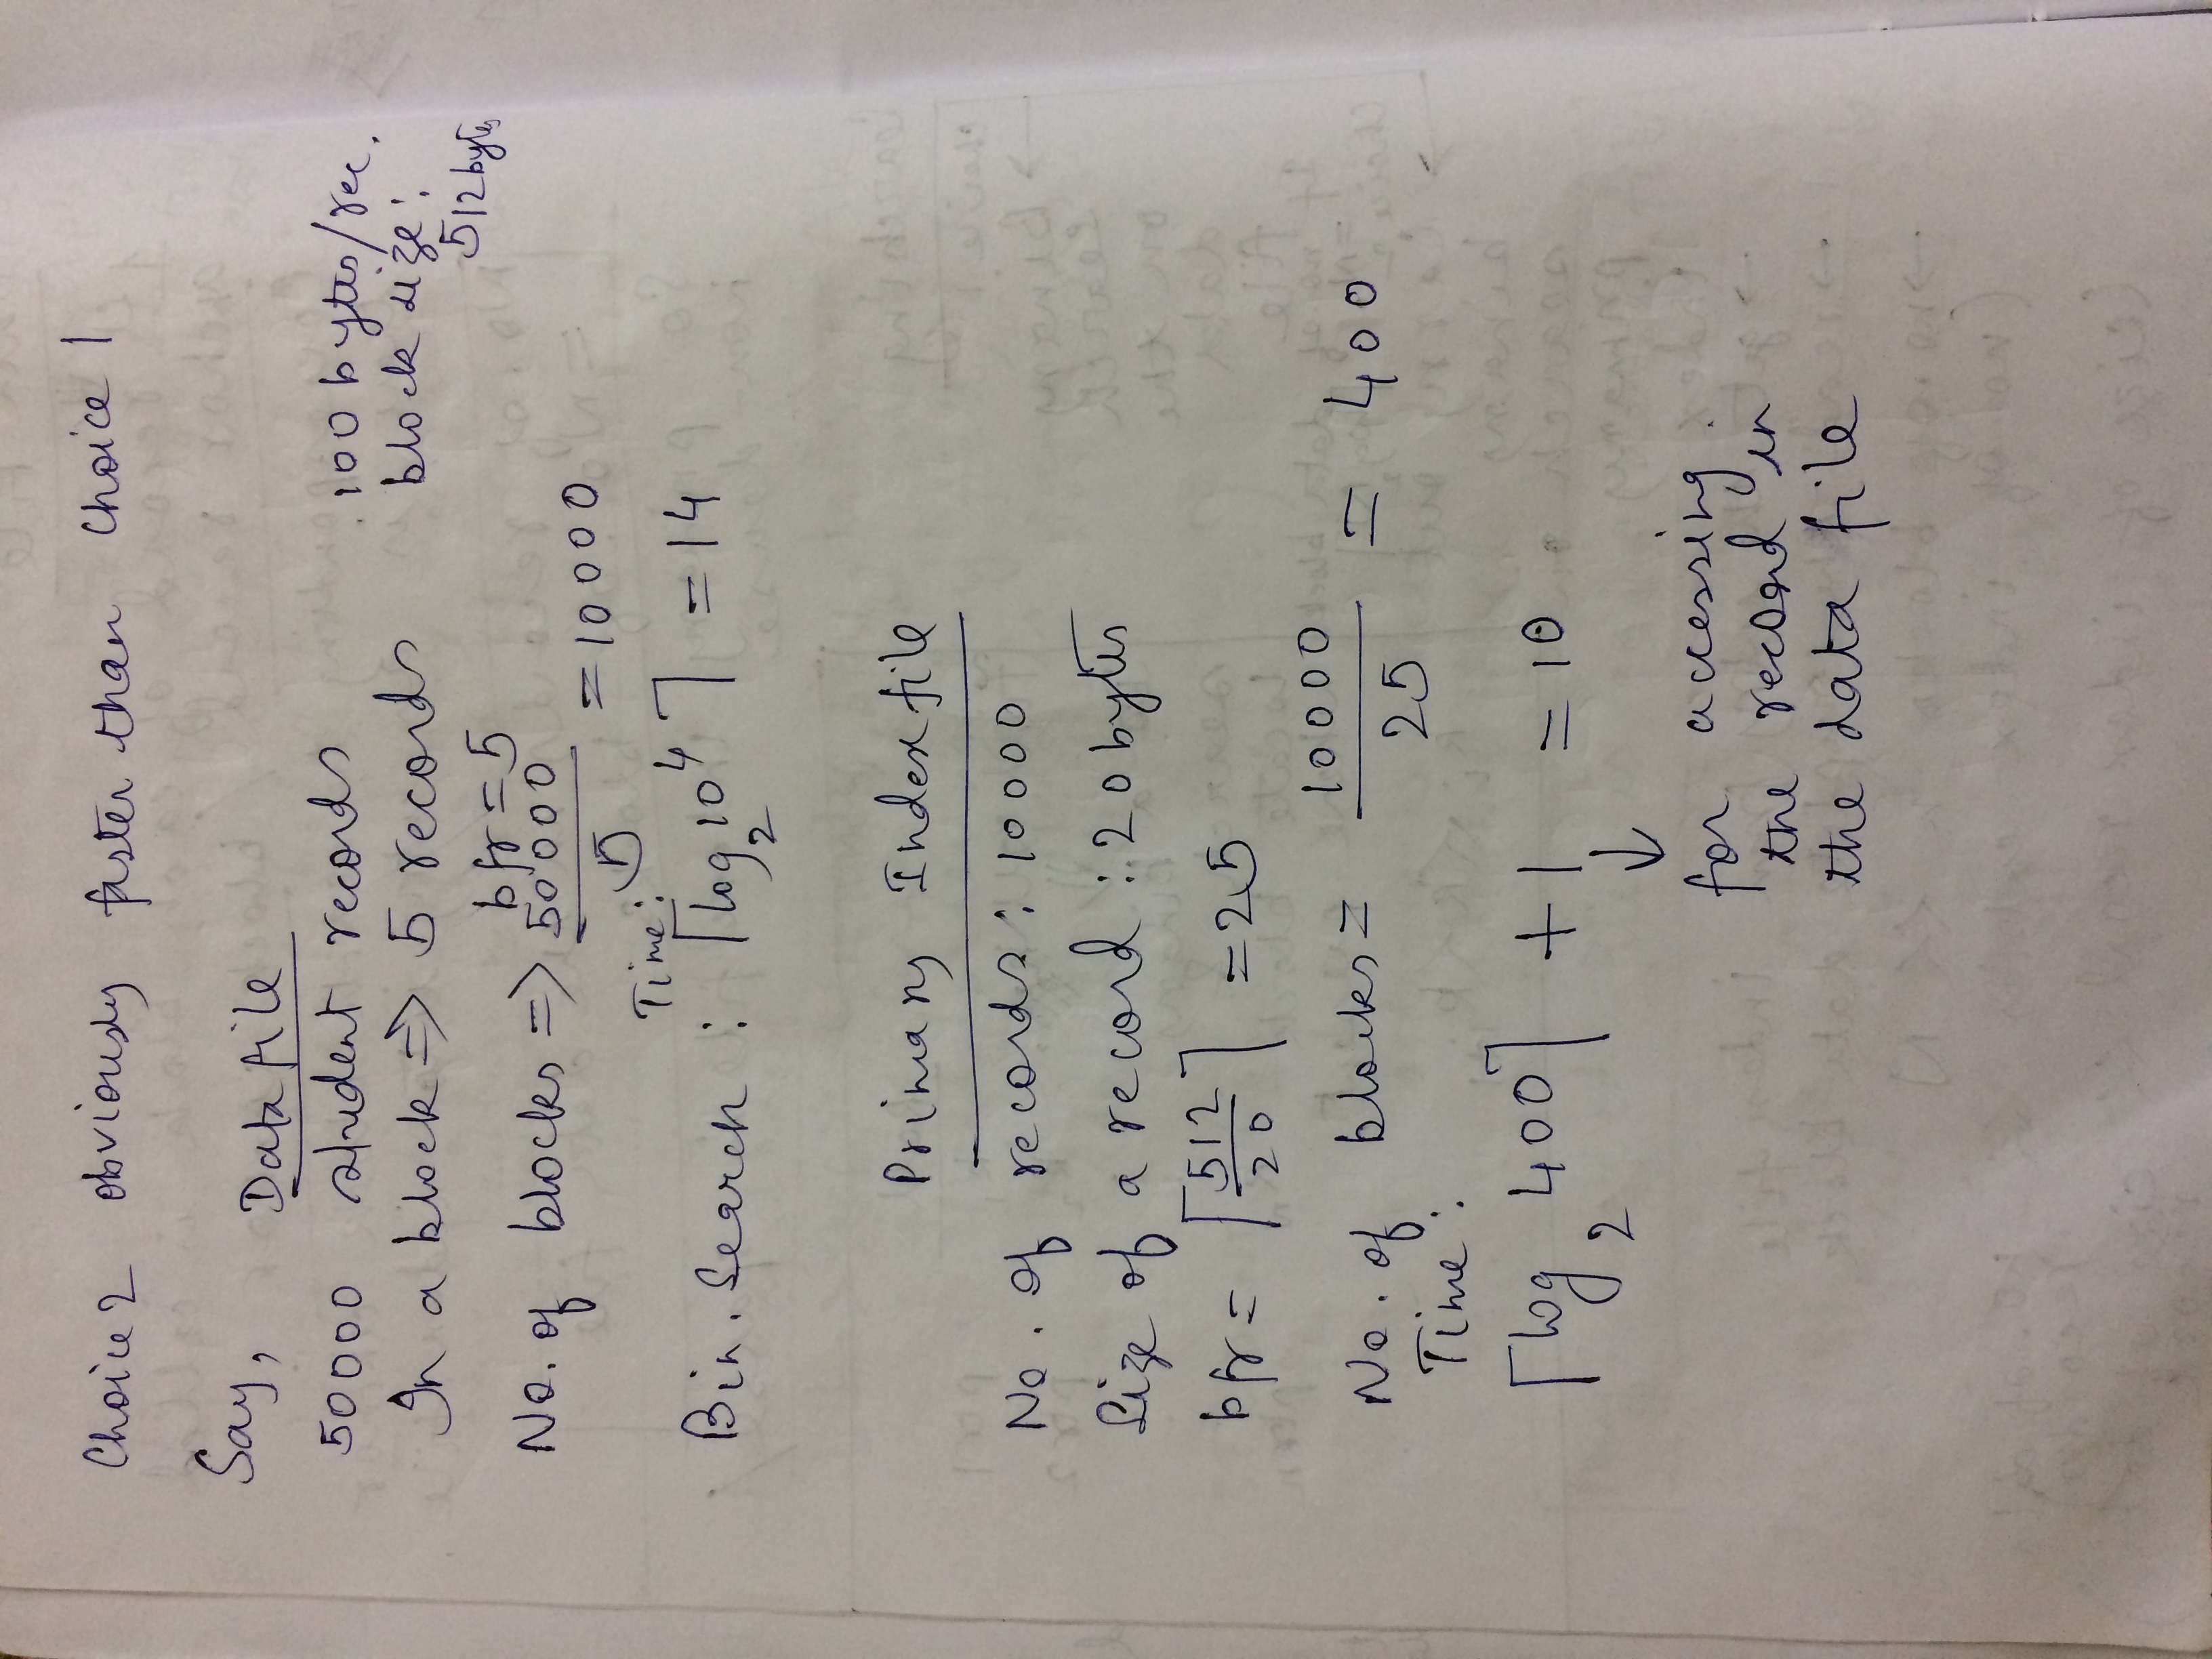 Choice 2 obviously faster than choice 1
Say,
Data file
50000 student records
100 bytes/rec.
In a block => 5 records
block size:
512 bytes
bfr = 5
No. of blocks => 50000 / 5 = 10000
Time:
Bin. Search : ⌈log₂10⁴⌉ = 14
Primary Index file
No. of records: 10000
Size of a record : 20 bytes
bfr = ⌈512/20⌉ = 25
No. of blocks = 10000 / 25 = 400
Time:
⌈log₂ 400⌉ + 1 = 10
↓
for accessing
the record in
the data file